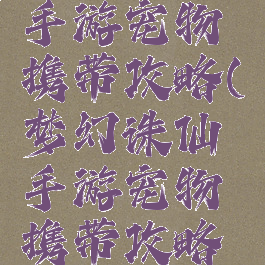 手游宠物
携带攻略(
梦幻诛仙
手游宠物
携带攻略